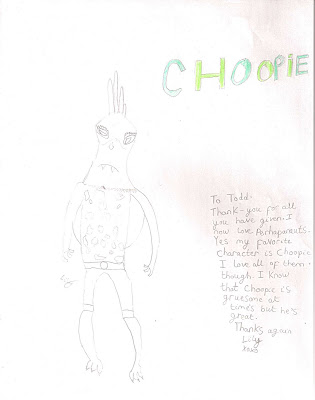 CHOOPIE
To Todd-
Thank-you for all
you have given. I
now love Pachapunauts.
Yes my favorite
character is Choopie
I love all of them -
though. I know
that Choopie is
gruesome at
time's but he's
great.
Thanks again
Lily
xoxo
Lily